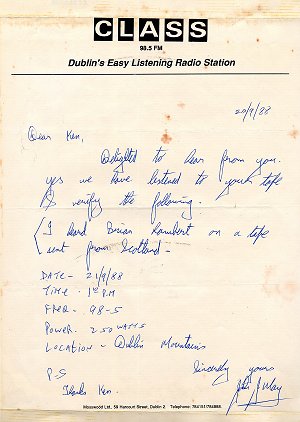 CLASS
98.5 FM
Dublin's Easy Listening Radio Station
20/9/88
Dear Ken,
Delighted to hear from you.
Yes we have listened to your tape
& verify the following.
(I heard Brian Lambert on a tape
sent from Scotland -
DATE - 21/9/88
TIME. 1 PM
FREQ. 98-5
POWER. 250 WATTS
LOCATION - Dublin Mountains
Sincerely yours
P-S
Thanks Ken.
Mosswood Ltd., 56 Harcourt Street, Dublin 2 Telephone: